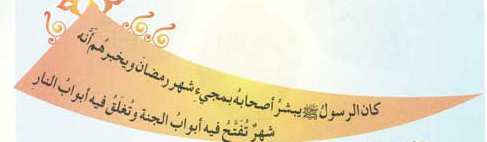 كان الرسولُ ﷺ يبشرُ أصحابهُ بمجيءِ شهر رمضانَ ويخبرُهُم أنه
شهرٌ تُفَتَّحُ فيه أبوابُ الجنة وتُغلَقُ فيه أبوابُ النارِ